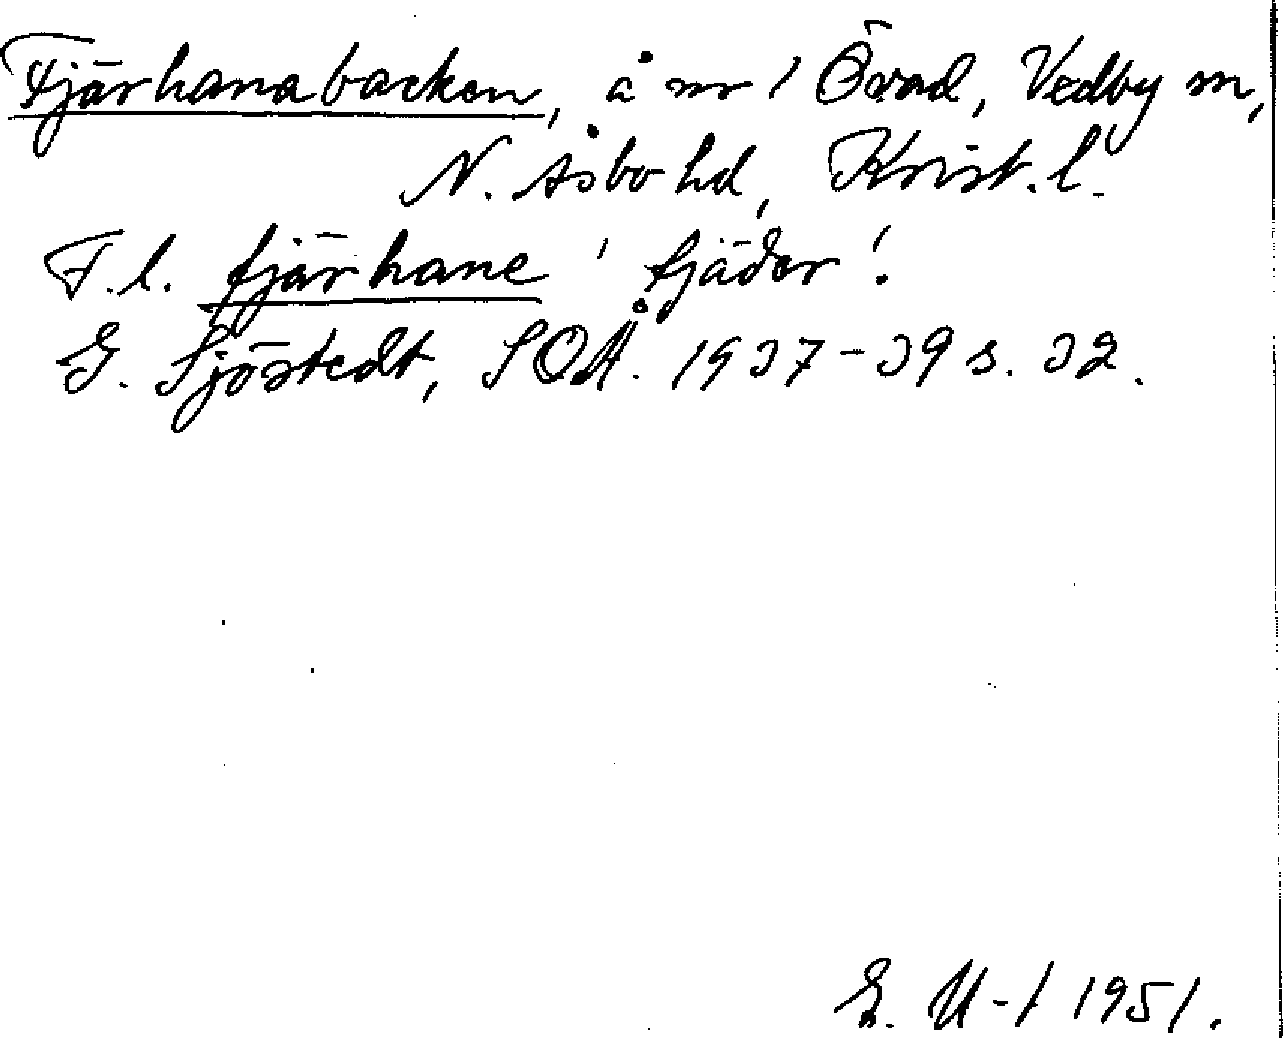 Fjärhanabacken, å nr 1 Övad, Vedby sn,
N. Åsbo hd, Krist. l.
F.l. fjärhane 'fjäder'.
G. Sjöstedt, SOÅ. 1937-39 s. 32.
1951.